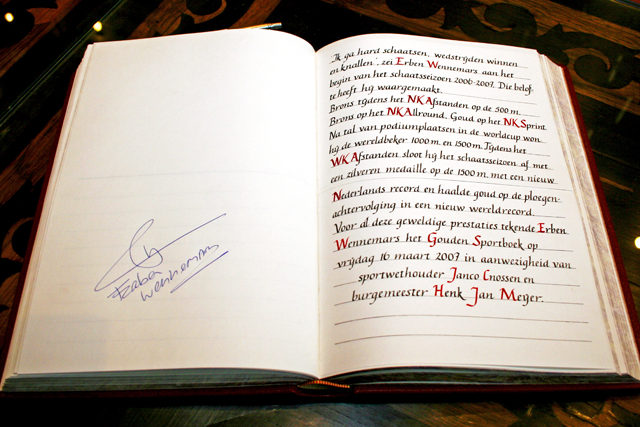 Erben
Wennemars
"Ik ga hard schaatsen, wedstrijden winnen
en knallen", zei Erben Wennemars aan het
begin van het schaatsseizoen 2006-2007. Die belof-
te heeft hij waargemaakt.
Brons tijdens het NK Afstanden op de 500 m.
Brons op het NK Allround. Goud op het NK Sprint.
Na tal van podiumplaatsen in de worldcup won
hij de wereldbeker 1000 m. en 1500 m. Tijdens het
WK Afstanden sloot hij het schaatsseizoen af met
een zilveren medaille op de 1500 m. met een nieuw
Nederlands record en haalde goud op de ploegen-
achtervolging in een nieuw wereldrecord.
Voor al deze geweldige prestaties tekende Erben
Wennemars het Gouden Sportboek op
vrijdag 16 maart 2007 in aanwezigheid van
sportwethouder Janco Cnossen en
burgemeester Henk Jan Meijer.